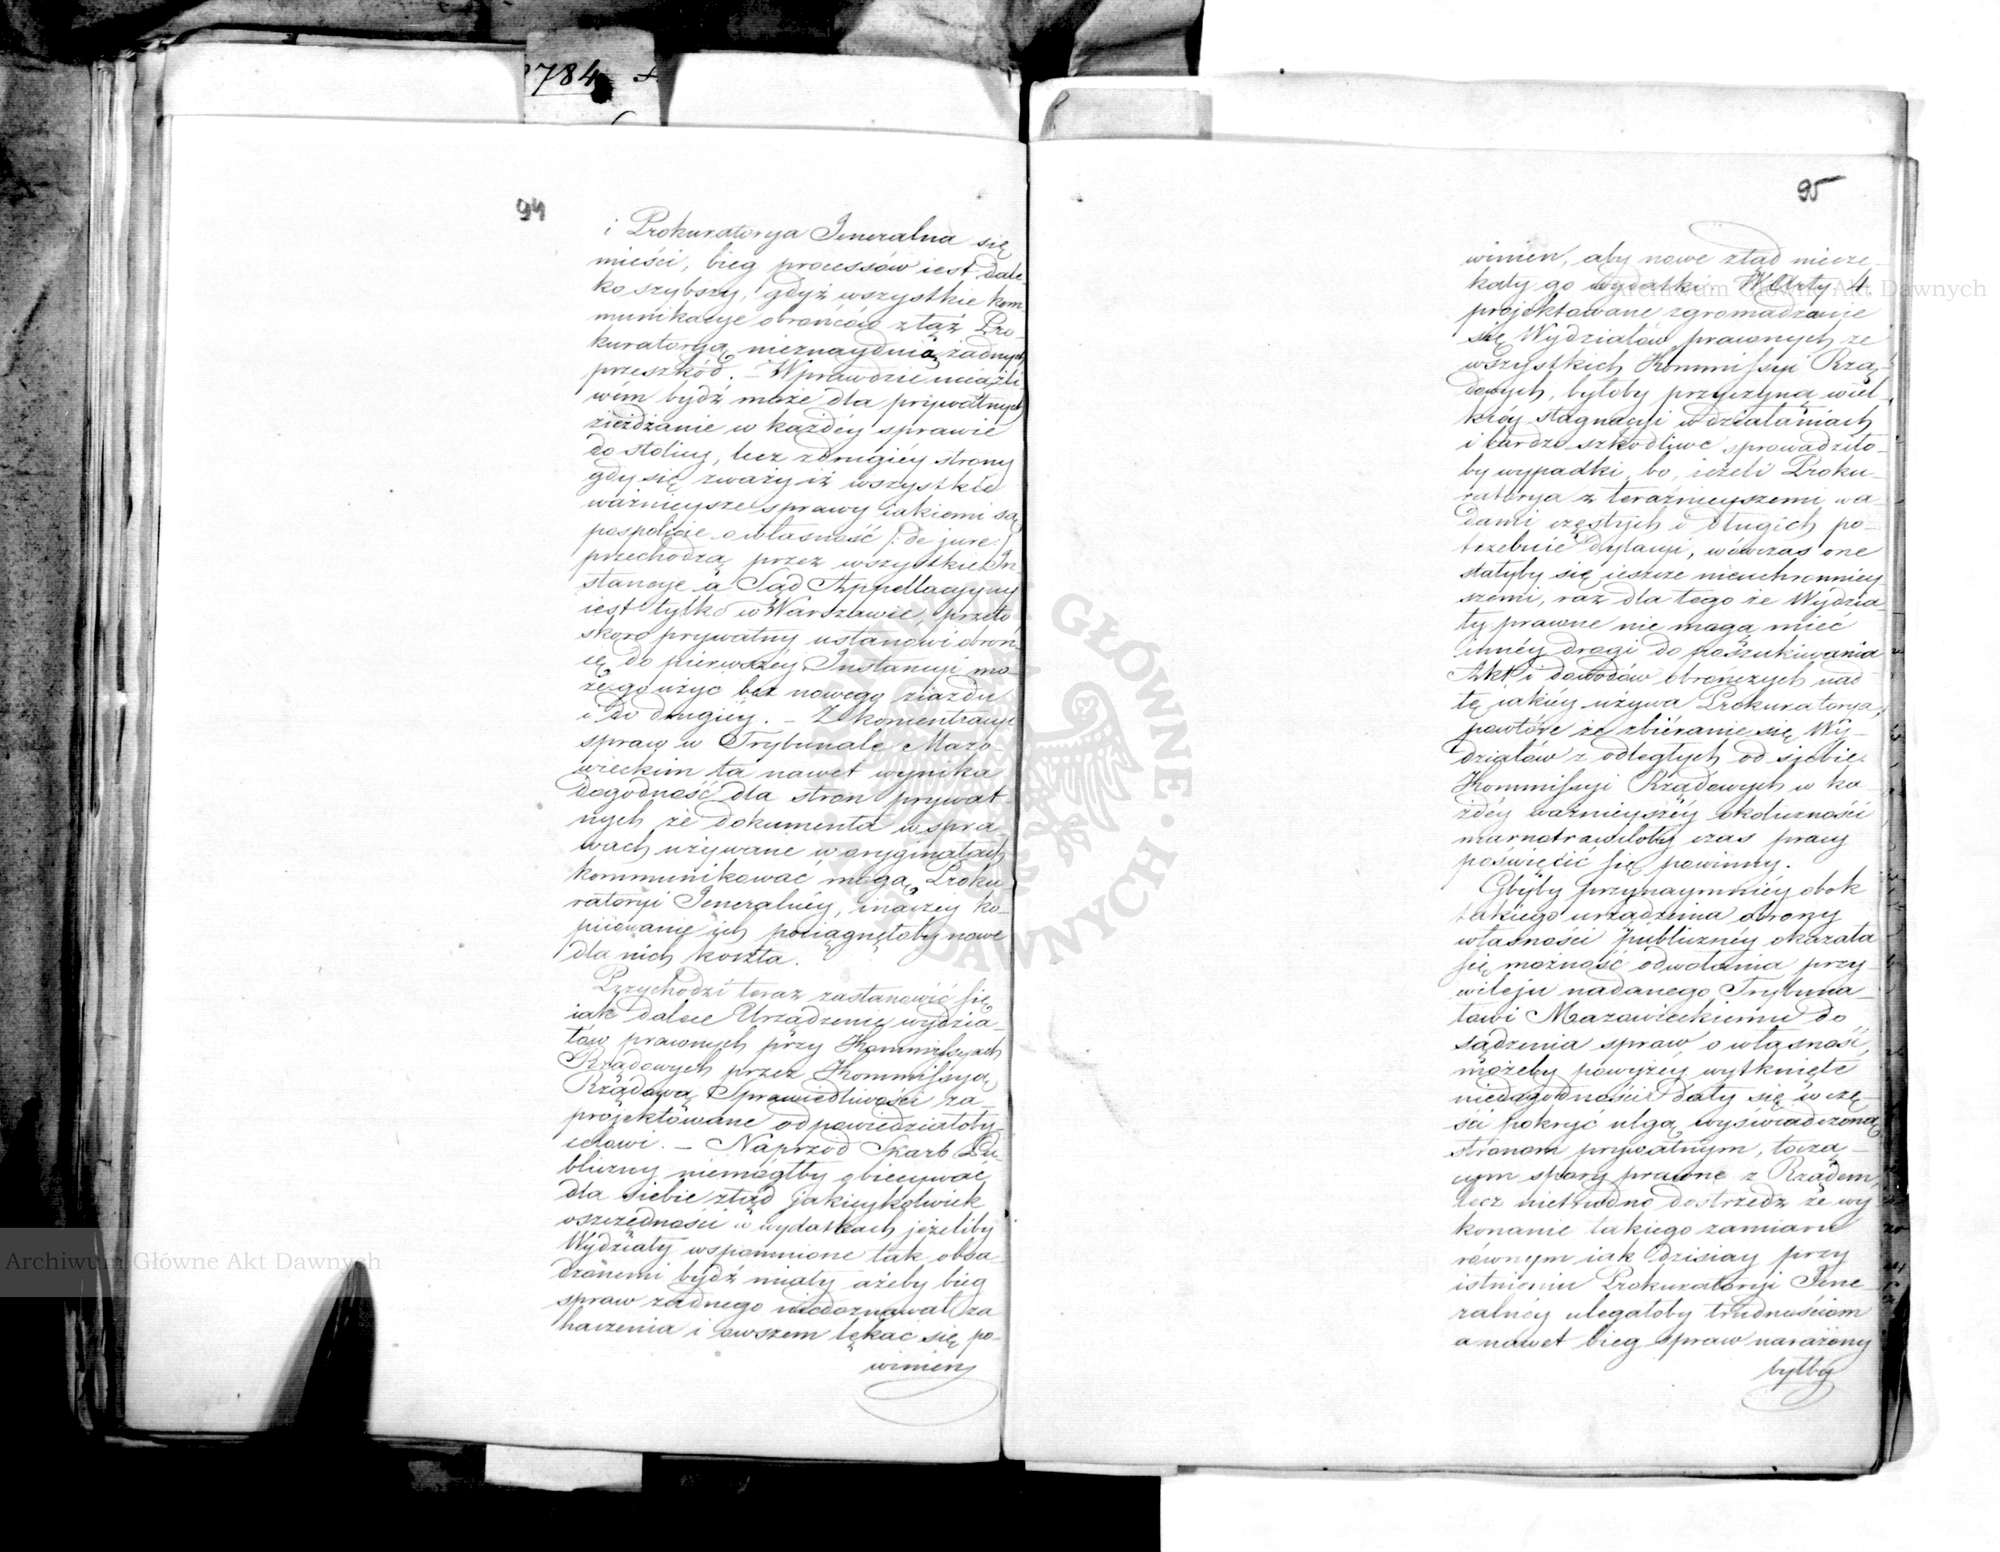 784
94
i Prokuratorya Jeneralna się
mieści, bieg processów iest dale-
ko szybszy, gdyż wszystkie kom-
munikacye obrońców z tąż Pro-
kuratoryą nieznayduią żadnych
przeszkód. – Wprawdzie uciążli-
wém bydź może dla prywatnych
zieżdżanie w każdéy sprawie
do stolicy, lecz z drugiey strony
gdy się zważy iż wszystkie
ważnieysze sprawy iakiemi są
pospolicie o własność /: de jure :/
przechodzą przez wszystkie In-
stancye a Sąd Appellacyyny
iest tylko w Warszawie, przeto
skoro prywatny ustanowi obroń-
cę do pierwszéy Instancyi mo-
że go użyć bez nowego ziazdu
i do drugiéy. – Z koncentracyi
spraw w Trybunale Mazo-
wieckim ta nawet wynika
dogodność dla stron prywat-
nych że dokumenta w spra-
wach używane w oryginałach
kommunikować mogą Proku-
ratoryi Jeneralnéy, inaczey ko-
piiowanie ich pociągnęłoby nowe
dla nich koszta.
Przychodzi teraz zastanowić się
iak dalece Urządzenie wydzia-
łów prawnych przy Kommissyach
Rządowych przez Kommissyą
Rządową Sprawiedliwości za-
projektowane odpowiedziałoby
celowi. – Naprzód Skarb Pu-
bliczny niemógłby obiecywać
dla siebie ztąd jakieykolwiek
oszczędności w wydatkach jeżeliby
Wydziały wspomnione tak obsa-
dzonemi bydź miały ażeby bieg
spraw żadnego niedoznawał za-
haczenia i owszem lękać się po-
winien
95
winien, aby nowe ztąd niecze-
kały go wydatki. W Arty 4
projektowane zgromadzanie
się Wydziałów prawnych ze
wszystkich Kommissyi Rzą-
dowych, byłoby przyczyną wiel-
kiéy stagnacyi w działaniach
i bardzo szkodliwe sprowadziło-
by wypadki, bo, ieżeli Proku-
ratorya z teraźnieyszemi wa-
dami częstych i długich po-
trzebuie dylacyi, wówczas one
stałyby się ieszcze nieuchronniey-
szemi, raz dla tego że Wydzia-
ły prawne nie mogą mieć
innéy drogi do poszukiwania
Akt i dowodów obrończych nad
tę iakiéy używa Prokuratorya,
powtóre że zbiéranie się Wy-
działów z odległych od siebie
Kommissyi Rządowych w ka-
żdéy ważnieyszéy okoliczności
marnotrawiłoby czas pracy
poświęcić się powinny.
Gdyby przynaymniéy obok
takiego urządzenia obrony
własności publicznéy okazała
się możność odwołania przy-
wileju nadanego Trybuna-
łowi Mazowieckiemu do
sądzenia spraw o własność,
możeby powyżéy wytknięte
niedogodności dały się w czę-
ści pokryć ulgą wyświadczoną
stronom prywatnym, toczą-
cym spory prawne z Rządem,
lecz nietrudno dostrzedz że wy-
konanie takiego zamiaru
równym iak dzisiay przy
istnieniu Prokuratoryi Jene-
ralnéy ulegałoby trudnościom
a nawet bieg spraw narażony
byłby
Archiwum Główne Akt Dawnych
Archiwum Główne Akt Dawnych